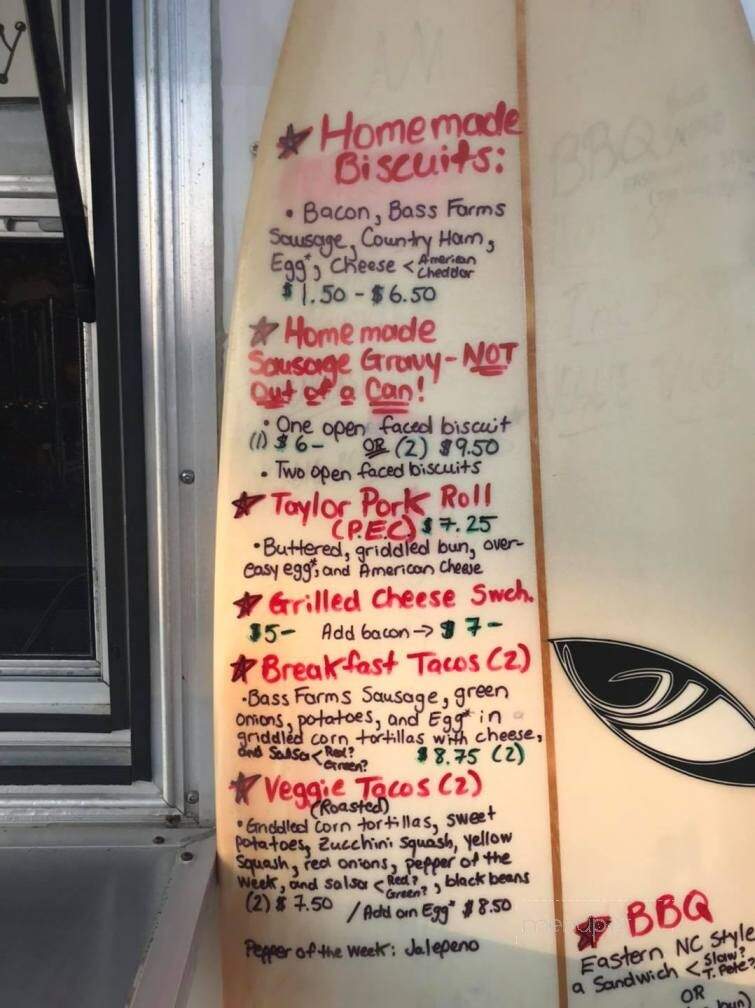 Homemade
Biscuits:
• Bacon, Bass Farms
Sausage, Country Ham,
Egg*, Cheese < American
Cheddar
$1.50 - $6.50
Homemade
Sausage Gravy - NOT
Out of a Can!
• One open faced biscuit
(1) $6- OR (2) $9.50
• Two open faced biscuits
Taylor Pork Roll
(P.E.C) $7.25
• Buttered, griddled bun, over-
easy egg*, and American Cheese
Grilled Cheese Swch.
$5- Add bacon → $7-
Breakfast Tacos (2)
• Bass Farms Sausage, green
onions, potatoes, and Egg* in
griddled corn tortillas with cheese,
and Salsa < Red?
Green? $8.75 (2)
Veggie Tacos (2)
(Roasted)
• Griddled corn tortillas, sweet
potatoes, Zucchini squash, yellow
squash, red onions, pepper of the
week, and salsa < Red?
Green?, black beans
(2) $7.50 / Add an Egg* $8.50
Pepper of the week: Jalepeno
BBQ
BBQ
Eastern NC Style
a Sandwich < Slaw?
T. Pete?
OR
bun)